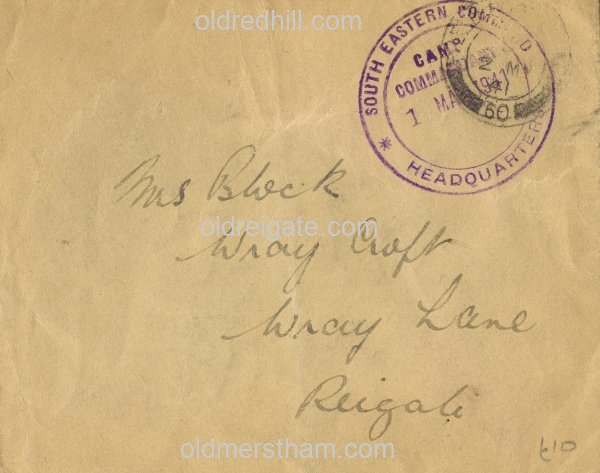 oldredhill.com
SOUTH EASTERN COMMAND
CAMP
COMMANDANT
1 MAR 1941
* HEADQUARTERS
60
Mrs Block
oldreigate.com
Wray Croft
Wray Lane
Reigate
oldmerstham.com
£10